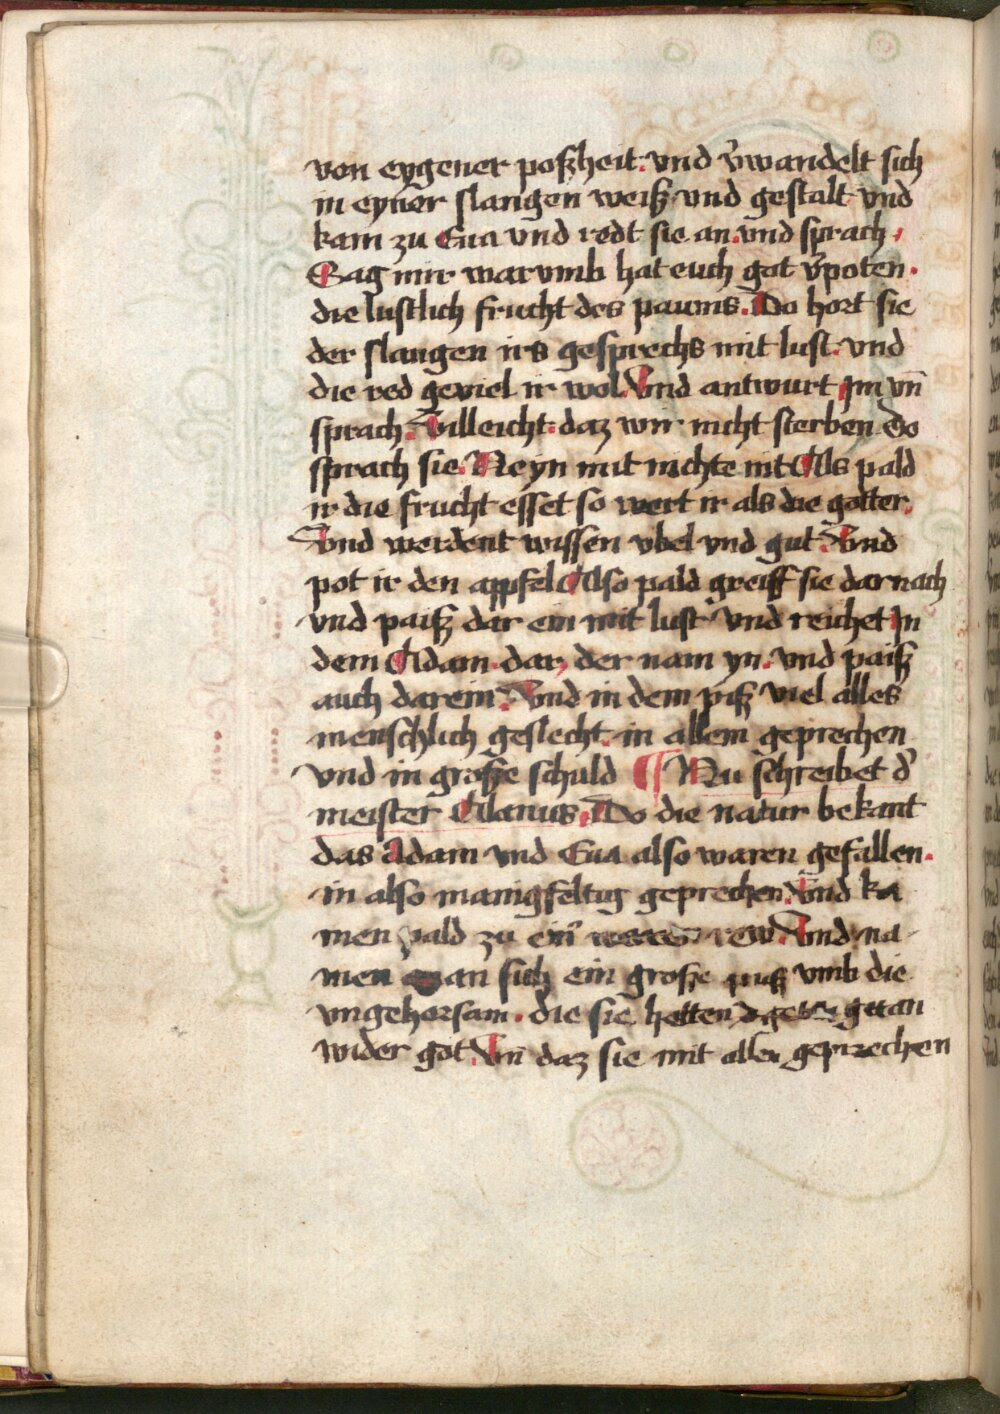 von eygener poßheit. vnd v̾wandelt sich
in eyner slangen weiß vnd gestalt vnd
kam zu Eua vnd redt sie an. vnd sprach.
Sag mir warvmb hat euch got v̾poten.
die lustlich frucht des paums. Do hort sie
der slangen irs gesprechs mit lust. vnd
die red geviel ir wol. Vnd antwurt Jm vn̄
sprach. Villeicht. daz wir nicht sterben Do
sprach sie. Neyn mit nichte nit Als pald
ir die frucht esset so wert ir als die gotter.
Vnd werdent wissen vbel vnd gut. Vnd
pot ir den appfel Also pald greiff sie darnach
vnd paiß dar ein mit lust vnd reichet Jn
dem Adam dar, der nam yn. vnd paiß
auch darein. Vnd in dem piß viel alles
menschlich geslecht. in allem geprechen
vnd in große schuld ¶ Nu schreibet d̾
meister Alanus. Do die natur bekant
das Adam vnd Eua also waren gefallen.
in also manigfeltig geprechen. Vnd ka
men pald zu ein̄ rew. Vnd na
men an sich ein große puß vmb die
vngehorsam. die sie hetten getan
wider got. Vn̄ daz sie mit allen geprechen